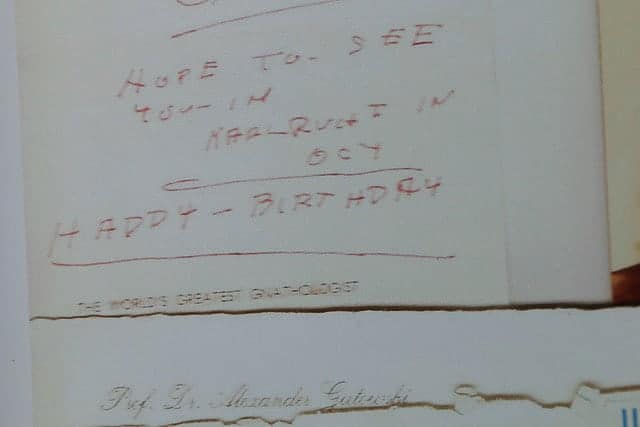 HOPE TO- SEE
YOU- IN
IN
OCT
HAPPY - BIRTHDAY
THE WORLD'S GREATEST GNATHOLOGIST
Prof. Dr. Alexander